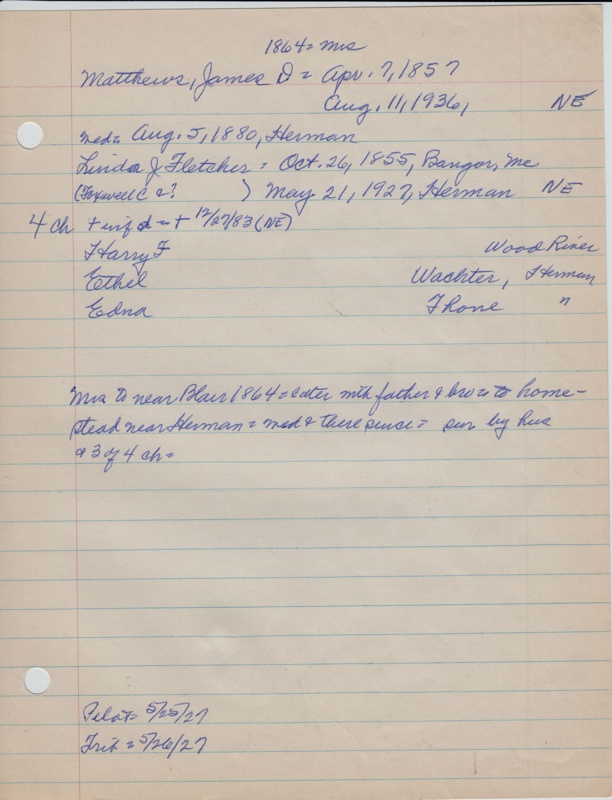 1864 = Mrs
Matthews, James D = Apr. 7, 1857
Aug. 11, 1936, NE
med = Aug. 5, 1880, Herman
Linda J Fletcher = Oct. 26, 1855, Bangor, Me
(Foxwell C &? ) May 21, 1927, Herman NE
4 ch + inf d = + 12/27/83 (NE)
Harry F Wood River
Ethel Wachter, Herman
Edna Thone "
Mrs to near Blair 1864 = later with father & bro = to home-
stead near Herman = med & there since = sur by hus
& 3 of 4 ch =
Pilot = 5/25/27
Trib = 5/26/27